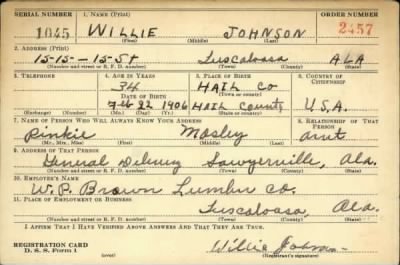 SERIAL NUMBER 1. NAME (Print) ORDER NUMBER
1045 WILLIE JOHNSON 2457
(First) (Middle) (Last)
2. ADDRESS (Print)
15-15-15-St Tuscaloosa ALA
(Number and street or R. F. D. number) (Town) (County) (State)
3. TELEPHONE 4. AGE IN YEARS 5. PLACE OF BIRTH 6. COUNTRY OF CITIZENSHIP
34 HAIL CO
DATE OF BIRTH (Town or county)
Feb 22 1906 HAIL County U.S.A.
(Exchange) (Number) (Mo.) (Day) (Yr.) (State or country)
7. NAME OF PERSON WHO WILL ALWAYS KNOW YOUR ADDRESS 8. RELATIONSHIP OF THAT PERSON
Pinkie Mosley ant
(Mr., Mrs., Miss) (First) (Middle) (Last)
9. ADDRESS OF THAT PERSON
General Delivery Sawyerville, Ala.
(Number and street or R. F. D. number) (Town) (County) (State)
10. EMPLOYER'S NAME
W. P. Brown Lumber Co.
11. PLACE OF EMPLOYMENT OR BUSINESS
Tuscaloosa, Ala.
(Number and street or R. F. D. number) (Town) (County) (State)
I AFFIRM THAT I HAVE VERIFIED ABOVE ANSWERS AND THAT THEY ARE TRUE.
REGISTRATION CARD
D. S. S. Form 1 Willie
(Registrant's signature)